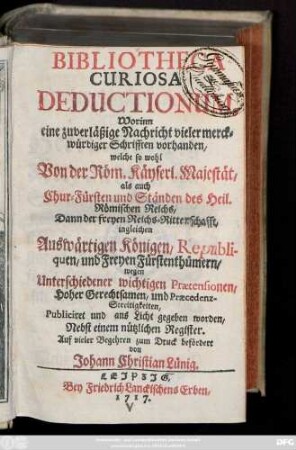 BIBLIOTHECA
CURIOSA
DEDUCTIONUM
Worinn
eine zuverläßige Nachricht vieler merck-
würdiger Schrifften vorhanden,
welche so wohl
Von der Röm. Käyserl. Majestät,
als auch
Chur-Fürsten und Ständen des Heil.
Römischen Reichs,
Dann der freyen Reichs-Ritterschafft,
ingleichen
Außwärtigen Königen, Republi-
quen, und Freyen Fürstenthümern,
wegen
Unterschiedener wichtigen Prætensionen,
Hoher Gerechtsamen, und Præcedenz-
Streitigkeiten,
Publiciret und ans Licht gegeben worden,
Nebst einem nützlichen Register.
Auf vieler Begehren zum Druck befördert
von
Johann Christian Lünig.
LEIPZIG,
Bey Friedrich Lanckischens Erben,
1717.